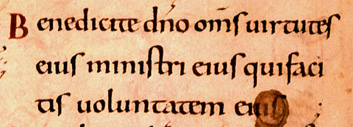 Benedicite dño om̃s uirtutes
eius ministri eius qui faci
tis uoluntatem eius